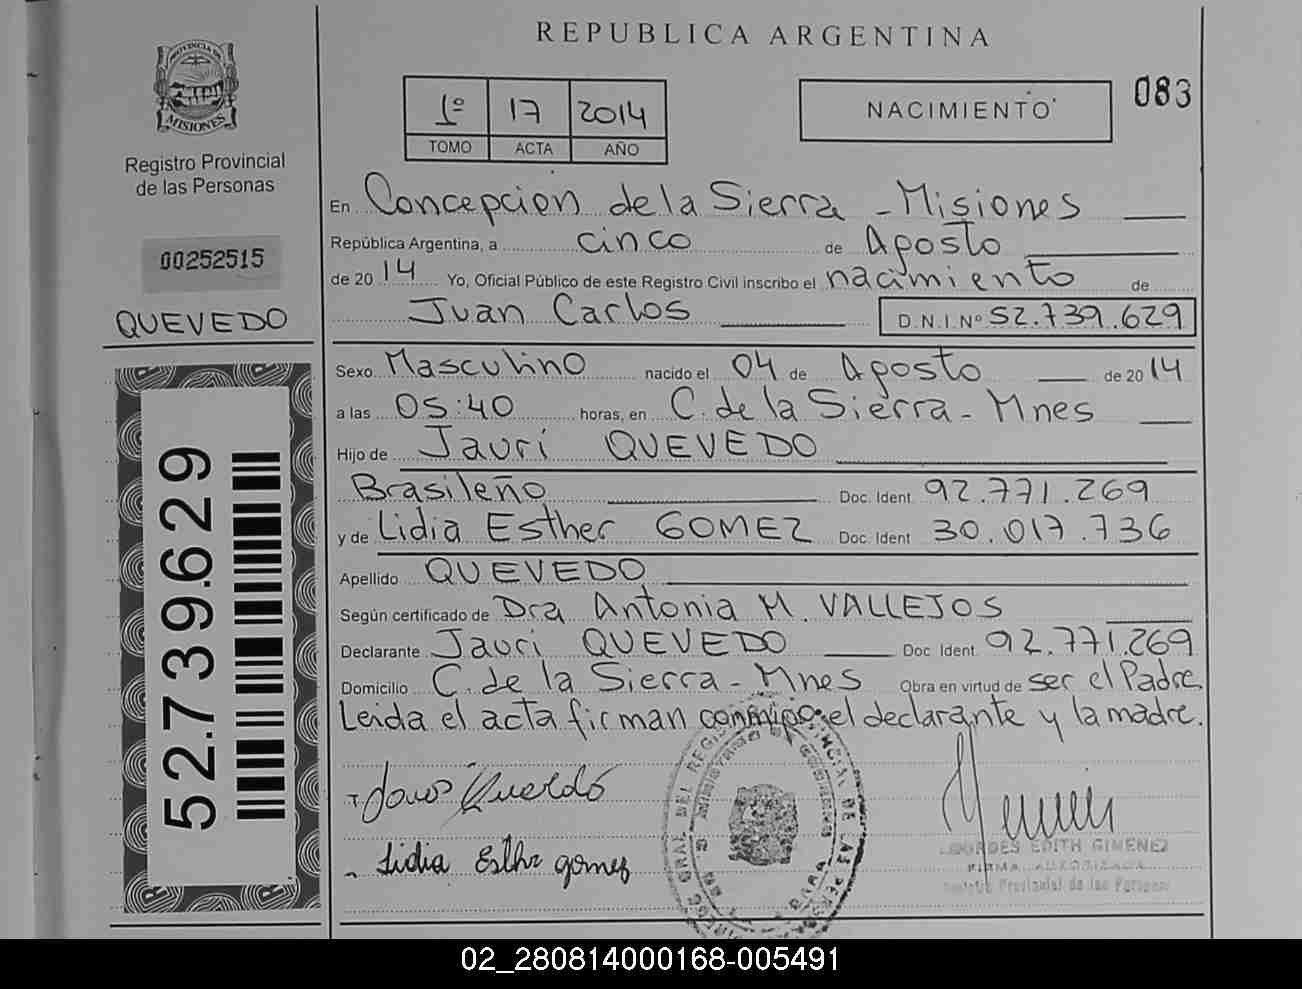 REPUBLICA ARGENTINA
PROVINCIA DE
MISIONES
Registro Provincial
de las Personas
00252515
QUEVEDO
52.739.629
1º 17 2014
TOMO ACTA AÑO
NACIMIENTO
083
En Concepcion de la Sierra - Misiones
República Argentina, a cinco de Agosto
de 2014 Yo, Oficial Público de este Registro Civil inscribo el nacimiento de
Juan Carlos D.N.I. Nº 52.739.629
Sexo Masculino nacido el 04 de Agosto de 2014
a las 05:40 horas, en C. de la Sierra - Mnes
Hijo de Jauri QUEVEDO
Brasileño Doc. Ident. 92.771.269
y de Lidia Esther GOMEZ Doc. Ident 30.017.736
Apellido QUEVEDO
Según certificado de Dra Antonia M. VALLEJOS
Declarante Jauri QUEVEDO Doc. Ident. 92.771.269
Domicilio C. de la Sierra - Mnes Obra en virtud de ser el Padre
Leida el acta firman conmigo el declarante y la madre.
Lidia Esther gomez
LOURDES EDITH GIMENEZ
FIRMA AUTORIZADA
Provincial de las Personas
02_280814000168-005491